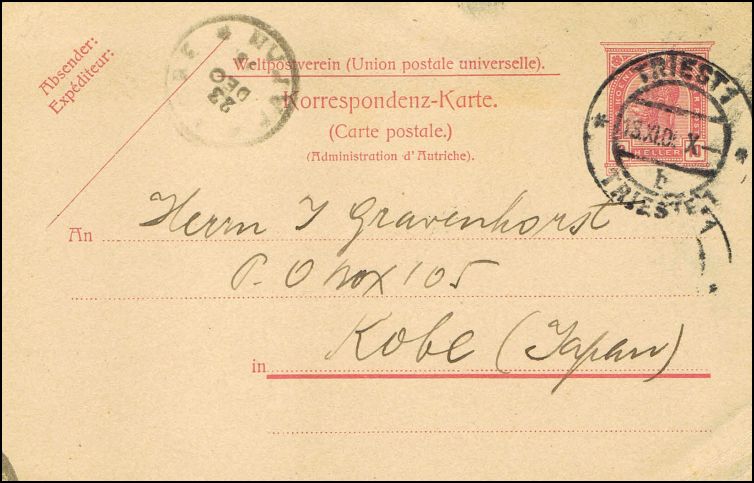 Absender:
Expéditeur:
Weltpostverein (Union postale universelle).
Korrespondenz-Karte.
(Carte postale.)
(Administration d'Autriche).
23
DEC
TRIEST 1
HELLER
b
TRIESTE 1
An Herrn J Gravenhorst
P. O box 105
in Kobe (Japan)